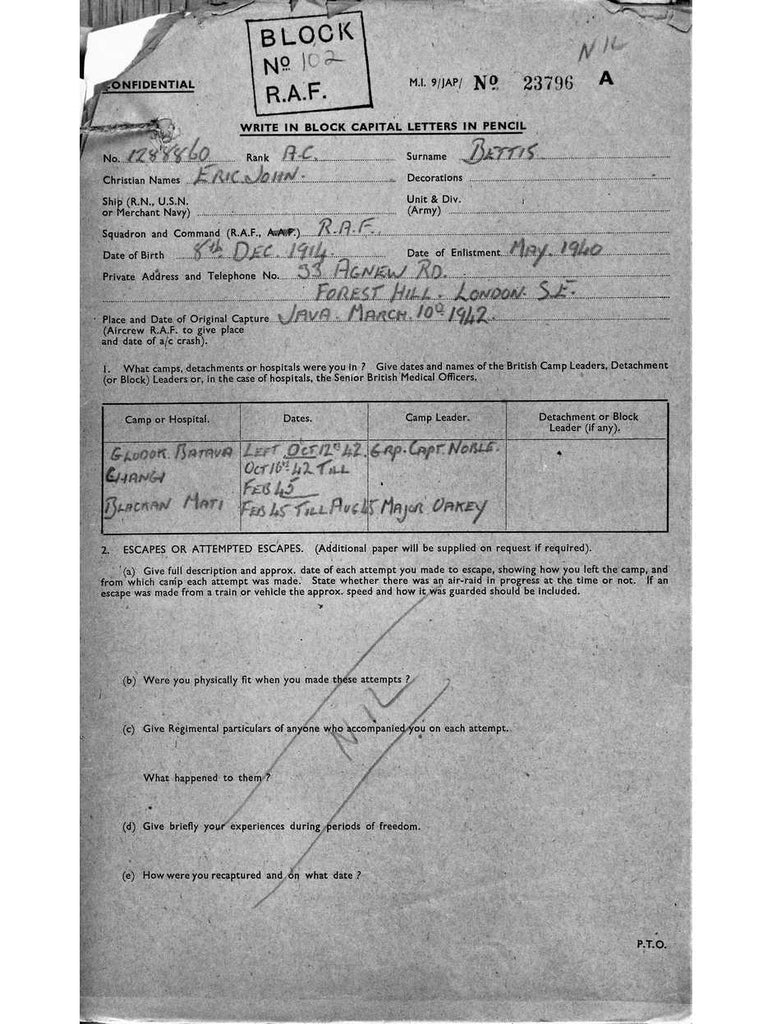 BLOCK
Nº 102
R.A.F.
NIL
CONFIDENTIAL
M.I. 9/JAP/ Nº 23796 A
WRITE IN BLOCK CAPITAL LETTERS IN PENCIL
No. 1288860 Rank A.C. Surname BETTIS
Christian Names ERIC JOHN. Decorations
Ship (R.N., U.S.N. or Merchant Navy)
Unit & Div. (Army)
Squadron and Command (R.A.F., A.A.F.) R.A.F.
Date of Birth 8th DEC. 1914. Date of Enlistment MAY. 1940
Private Address and Telephone No. 33 AGNEW RD.
FOREST HILL. LONDON. S.E.
Place and Date of Original Capture JAVA. MARCH. 1942.
(Aircrew R.A.F. to give place
and date of a/c crash).
1. What camps, detachments or hospitals were you in ? Give dates and names of the British Camp Leaders, Detachment
(or Block) Leaders or, in the case of hospitals, the Senior British Medical Officers.
Camp or Hospital. Dates. Camp Leader. Detachment or Block Leader (if any).
GLODOK BATAVA LEFT OCT 12th 42. GRP. CAPT. NOBLE.
CHANGI OCT 16th 42 TILL
FEB 45
BLACKAN MATI FEB 45 TILL AUG 45 MAJOR OAKEY
2. ESCAPES OR ATTEMPTED ESCAPES. (Additional paper will be supplied on request if required).
(a) Give full description and approx. date of each attempt you made to escape, showing how you left the camp, and
from which camp each attempt was made. State whether there was an air-raid in progress at the time or not. If an
escape was made from a train or vehicle the approx. speed and how it was guarded should be included.
(b) Were you physically fit when you made these attempts ?
NIL
(c) Give Regimental particulars of anyone who accompanied you on each attempt.
What happened to them ?
(d) Give briefly your experiences during periods of freedom.
(e) How were you recaptured and on what date ?
P.T.O.